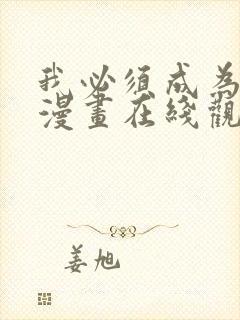 我必须成为
漫畫在綫觀
姜旭